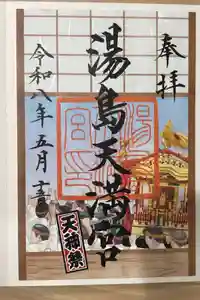 奉拝
湯島天満宮
令和八年五月吉日
天神祭